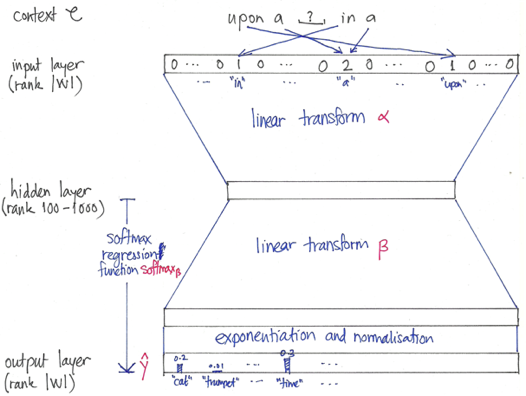 context C
upon a ? in a
input layer
(rank |W|)
0 ... 0 1 0 ... 0 2 0 ... 0 1 0 ... 0
... "in" ... "a" .. "upon" ..
linear transform α
hidden layer
(rank 100-1000)
softmax
regression
function softmaxβ
linear transform β
exponentiation and normalisation
output layer
(rank |W|)
ŷ
0.2 0.01 ... 0.3 ...
"cat" "trumpet" ... "time" ...